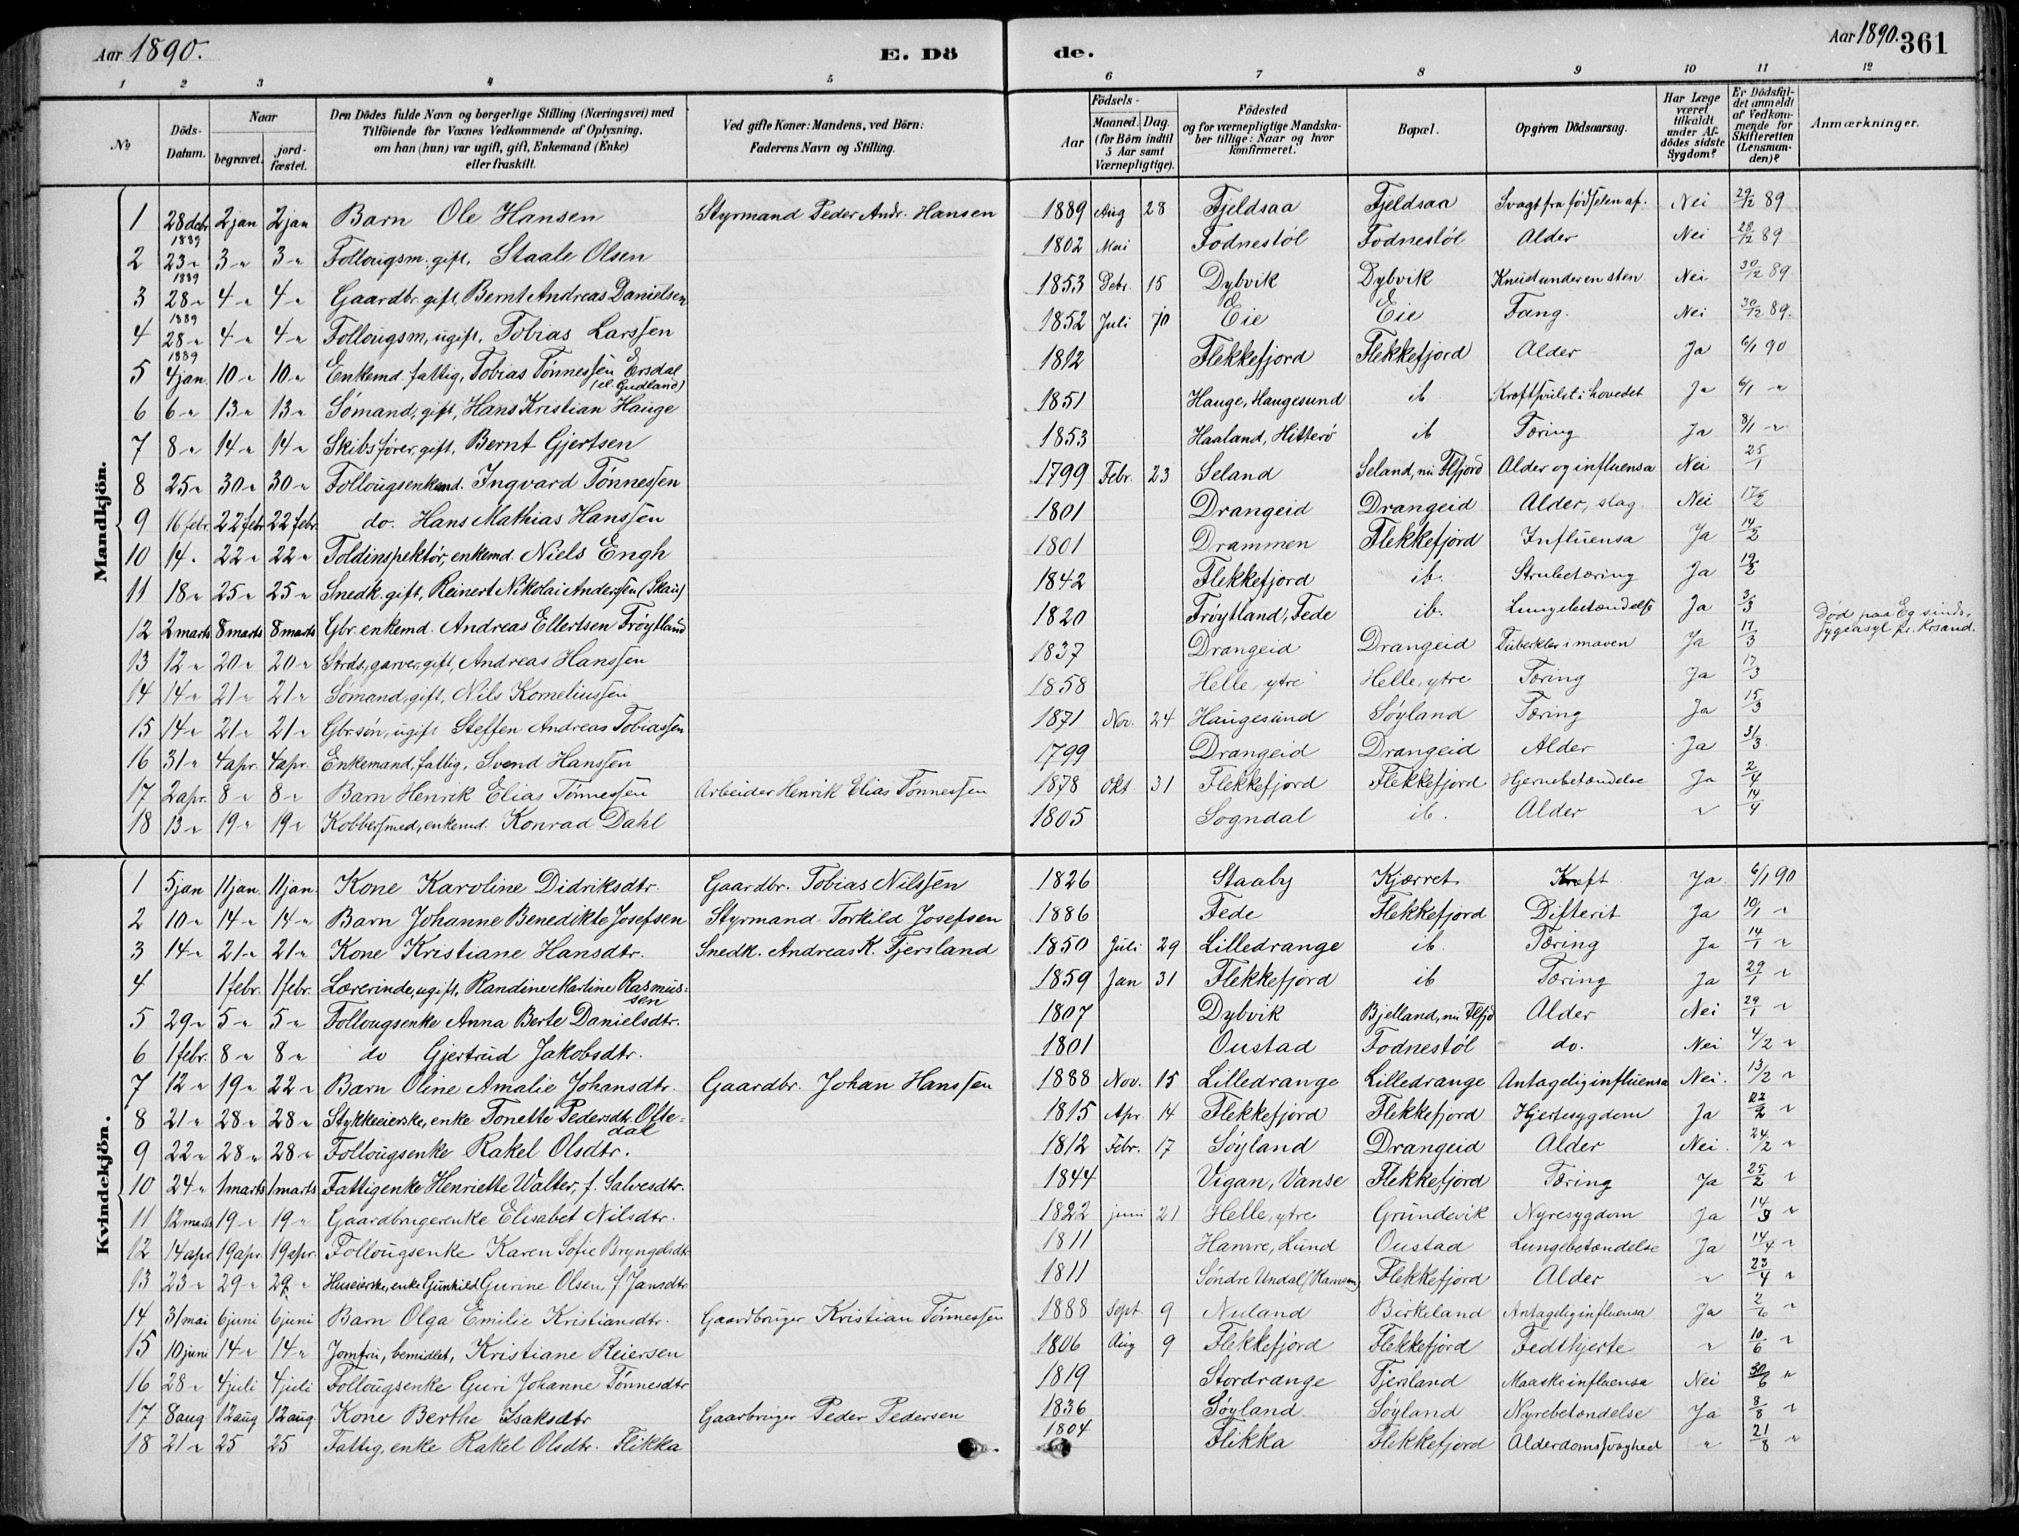 Aar 1890. E. Dö de. Aar 1890. 361
1 2 3 4 5 6 7 8 9 10 11 12
No
Döds-Datum.
Naar
begravet. jordfæstet.
Den Dödes fulde Navn og borgerlige Stilling (Næringsvei) med
Tilföiende for Voxnes Vedkommende af Oplysning,
om han (hun) var ugift, gift, Enkemand (Enke)
eller fraskilt.
Ved gifte Koner: Mandens, ved Börn:
Faderens Navn og Stilling.
Födsels-
Aar Maaned. Dag.
(for Börn indtil
5 Aar samt
Værnepligtige).
Födested
og for værnepligtige Mandskaber tillige: Naar og hvor
konfirmeret.
Bopæl.
Opgiven Dödsaarsag.
Har Læge
været
tilkaldt
under Afdödes sidste
Sygdom?
Er Dödsfaldet anmeldt
af Vedkommende for
Skifteretten
(Lensmanden)?
Anmærkninger.
Mandkjön.
1 28 decbr 1889 2 jan 2 jan Barn Ole Hansen Styrmand Peder Andr. Hansen 1889 Aug 28 Fjeldsaa Fjeldsaa Svagt fra födselen af. Nei 29/12 89
2 23 " 1889 3 " 3 " Follougsm. gift, Staale Olsen 1802 Mai Fodnestöl Fodnestöl Alder Nei 28/12 89
3 28 " 1889 4 " 4 " Gaardbr. gift, Bernt Andreas Danielsen 1853 Febr. 15 Dybvik Dybvik Knust under en sten Nei 30/12 89
4 28 " 1889 4 " 4 " Follougsm, ugift, Tobias Larssen 1852 Juli Eie Eie Fang. Nei 30/12 89.
5 4 jan. 10 " 10 " Enkemd. fattig, Tobias Tönnessen Ersdal (el. Gudland) 1812 Flekkefjord Flekkefjord Alder Ja 6/1 90
6 6 " 13 " 13 " Sömand, gift, Hans Kristian Hauge 1851 Hauge, Haugesund ib Kræftsvulst i hovedet Ja 6/1 "
7 8 " 14 " 14 " Skibsförer, gift, Bernt Gjertsen 1853 Haaland, Hitterö ib Tæring Ja 8/1 "
8 25 " 30 " 30 " Follougsenkemd. Ingvard Tönnessen 1799 Febr. 23 Seland Seland, nu Flfjord Alder og influensa Nei 25/1
9 16 febr. 22 febr 22 febr. do. Hans Mathias Hanssen 1801 Drangeid Drangeid Alder, slag Nei 17/2
10 14 . 22 " 22 " Toldinspektör, enkemd. Niels Engh 1801 Drammen Flekkefjord Influensa Ja 14/2
11 18 " 25 " 25 " Snedk. gift, Reinert Nikolai Anderssen (Skau) 1842 Flekkefjord ib. Strubetæring Ja 19/2
12 2 marts 8 marts 8 marts Gbr. enkemd. Andreas Ellertsen Fröytland 1820 Fröytland, Fede ib. Lungebetændelse Ja 3/3 Död paa Eg sindssygeasyl pr. Krsand.
13 12 " 20 " 20 " Strds, garver, gift, Andreas Hanssen 1837 Drangeid Drangeid Tuberkler i maven Ja 17/3
14 14 " 21 " 21 " Sömand, gift, Nils Korneliussen 1858 Helle, ytre Helle, ytre Tæring Ja 17/3
15 14 " 21 " 21 " Gbr.sön, ugift Steffen Andreas Tobiassen 1871 Nov. 24 Haugesund Söyland Tæring Ja 15/3
16 31 " 4 apr. 4 apr. Enkemand, fattig, Svend Hanssen 1799 Drangeid Drangeid Alder Ja 31/3
17 2 apr. 8 " 8 " Barn Henrik Elias Tönnessen Arbeider Henrik Elias Tönnessen 1878 Okt. 31 Flekkefjord Flekkefjord Hjernebetændelse Ja 2/4
18 13 " 19 " 19 " Kobbersmed, enkemd. Konrad Dahl 1805 Sogndal ib. Alder " 14/4
Kvindekjön.
1 5 jan 11 jan. 11 jan. Kone Karoline Didriksdtr. Gaardbr. Tobias Nilssen 1826 Staaby Kjærret Kræft Ja 6/1 90
2 10 " 14 " 14 " Barn Johanne Benedikte Josefsen Styrmand Torkild Josefsen 1886 Fede Flekkefjord Difterit Ja 10/1 "
3 14 " 21 " 21 " Kone Kristiane Hansdtr. Snedk. Andreas K. Fjersland 1850 Juli 29 Lilledrange ib. Tæring Ja 14/1 "
4 1 febr. 1 febr. Lærerinde, ugift, Randine Martine Rasmussen 1859 Jan 31 Flekkefjord ib Tæring Ja 29/1 "
5 29 " 5 " 5 " Follougsenke Anna Berte Danielsdtr. 1807 Dybvik Bjelland, nu Flfjd Alder Nei 29/1 "
6 1 febr. 8 " 8 " do Gjertrud Jakobsdtr. 1801 Oustad Fodnestöl do. Nei 4/2 "
7 12 " 19 " 22 " Barn Oline Amalie Johansdtr. Gaardbr. Johan Hanssen 1888 Nov. 15 Lilledrange Lilledrange Antagelig influensa Nei. 13/2 "
8 21 " 28 " 28 " Stykkeeierske, enke Tonette Pedersdtr. Oftedal 1815 Apr. 14 Flekkefjord Flekkefjord Hjertesygdom Ja 22/2 "
9 22 " 28 " 28 " Follougsenke Rakel Olsdtr. 1812 Febr. 17 Söyland Drangeid Alder Nei. 24/2 "
10 24 " 1 marts 1 marts Fattigenke Henriette Walter, f. Salvesdtr. 1844 Vigan, Vanse Flekkefjord Tæring Ja 25/2 "
11 12 marts 19 " 19 " Gaardbrugerenke Elisabet Nilsdtr. 1822 juni 21 Helle, ytre Grundevik Nyresygdom Ja 14/3 "
12 14 apr 19 apr. 19 apr. Follougsenke Karen Sofie Bryngelsdtr 1811 Hamre, Lund Oustad Lungebetændelse Ja 14/4 "
13 23 " 29 " 29 " Huseierske, enke Gunhild Gurine Olsen, f Jansdtr 1811 Söndre Undal Flekkefjord Alder " 23/4 "
14 31 mai 6 juni 6 juni Barn Olga Emilie Kristiansdtr. Gaardbruger Kristian Tönnessen 1888 Sept. 9 Nuland Birkeland Antagelig influensa Ja 2/6 "
15 10 juni 14 " 14 " Jomfru, bemidlet, Kristiane Reiersen 1806 Aug 9 Flekkefjord Flekkefjord Fedthjerte " 10/6 "
16 28 " 4 juli 4 juli Follougsenke Guri Johanne Tönnesdtr 1819 Stordrange Fjersland Maaske influensa Nei 30/6 "
17 8 aug 12 aug 12 aug. Kone Berthe Isaksdtr Gaarbruger Peder Pedersen 1836 Söyland Söyland Nyrebetændelse Ja 8/8 "
18 21 " 25 25 Fattig, enke Rakel Olsdtr. Flikka 1804 Flikka Flekkefjord Alderdomssvaghed " 21/8 "